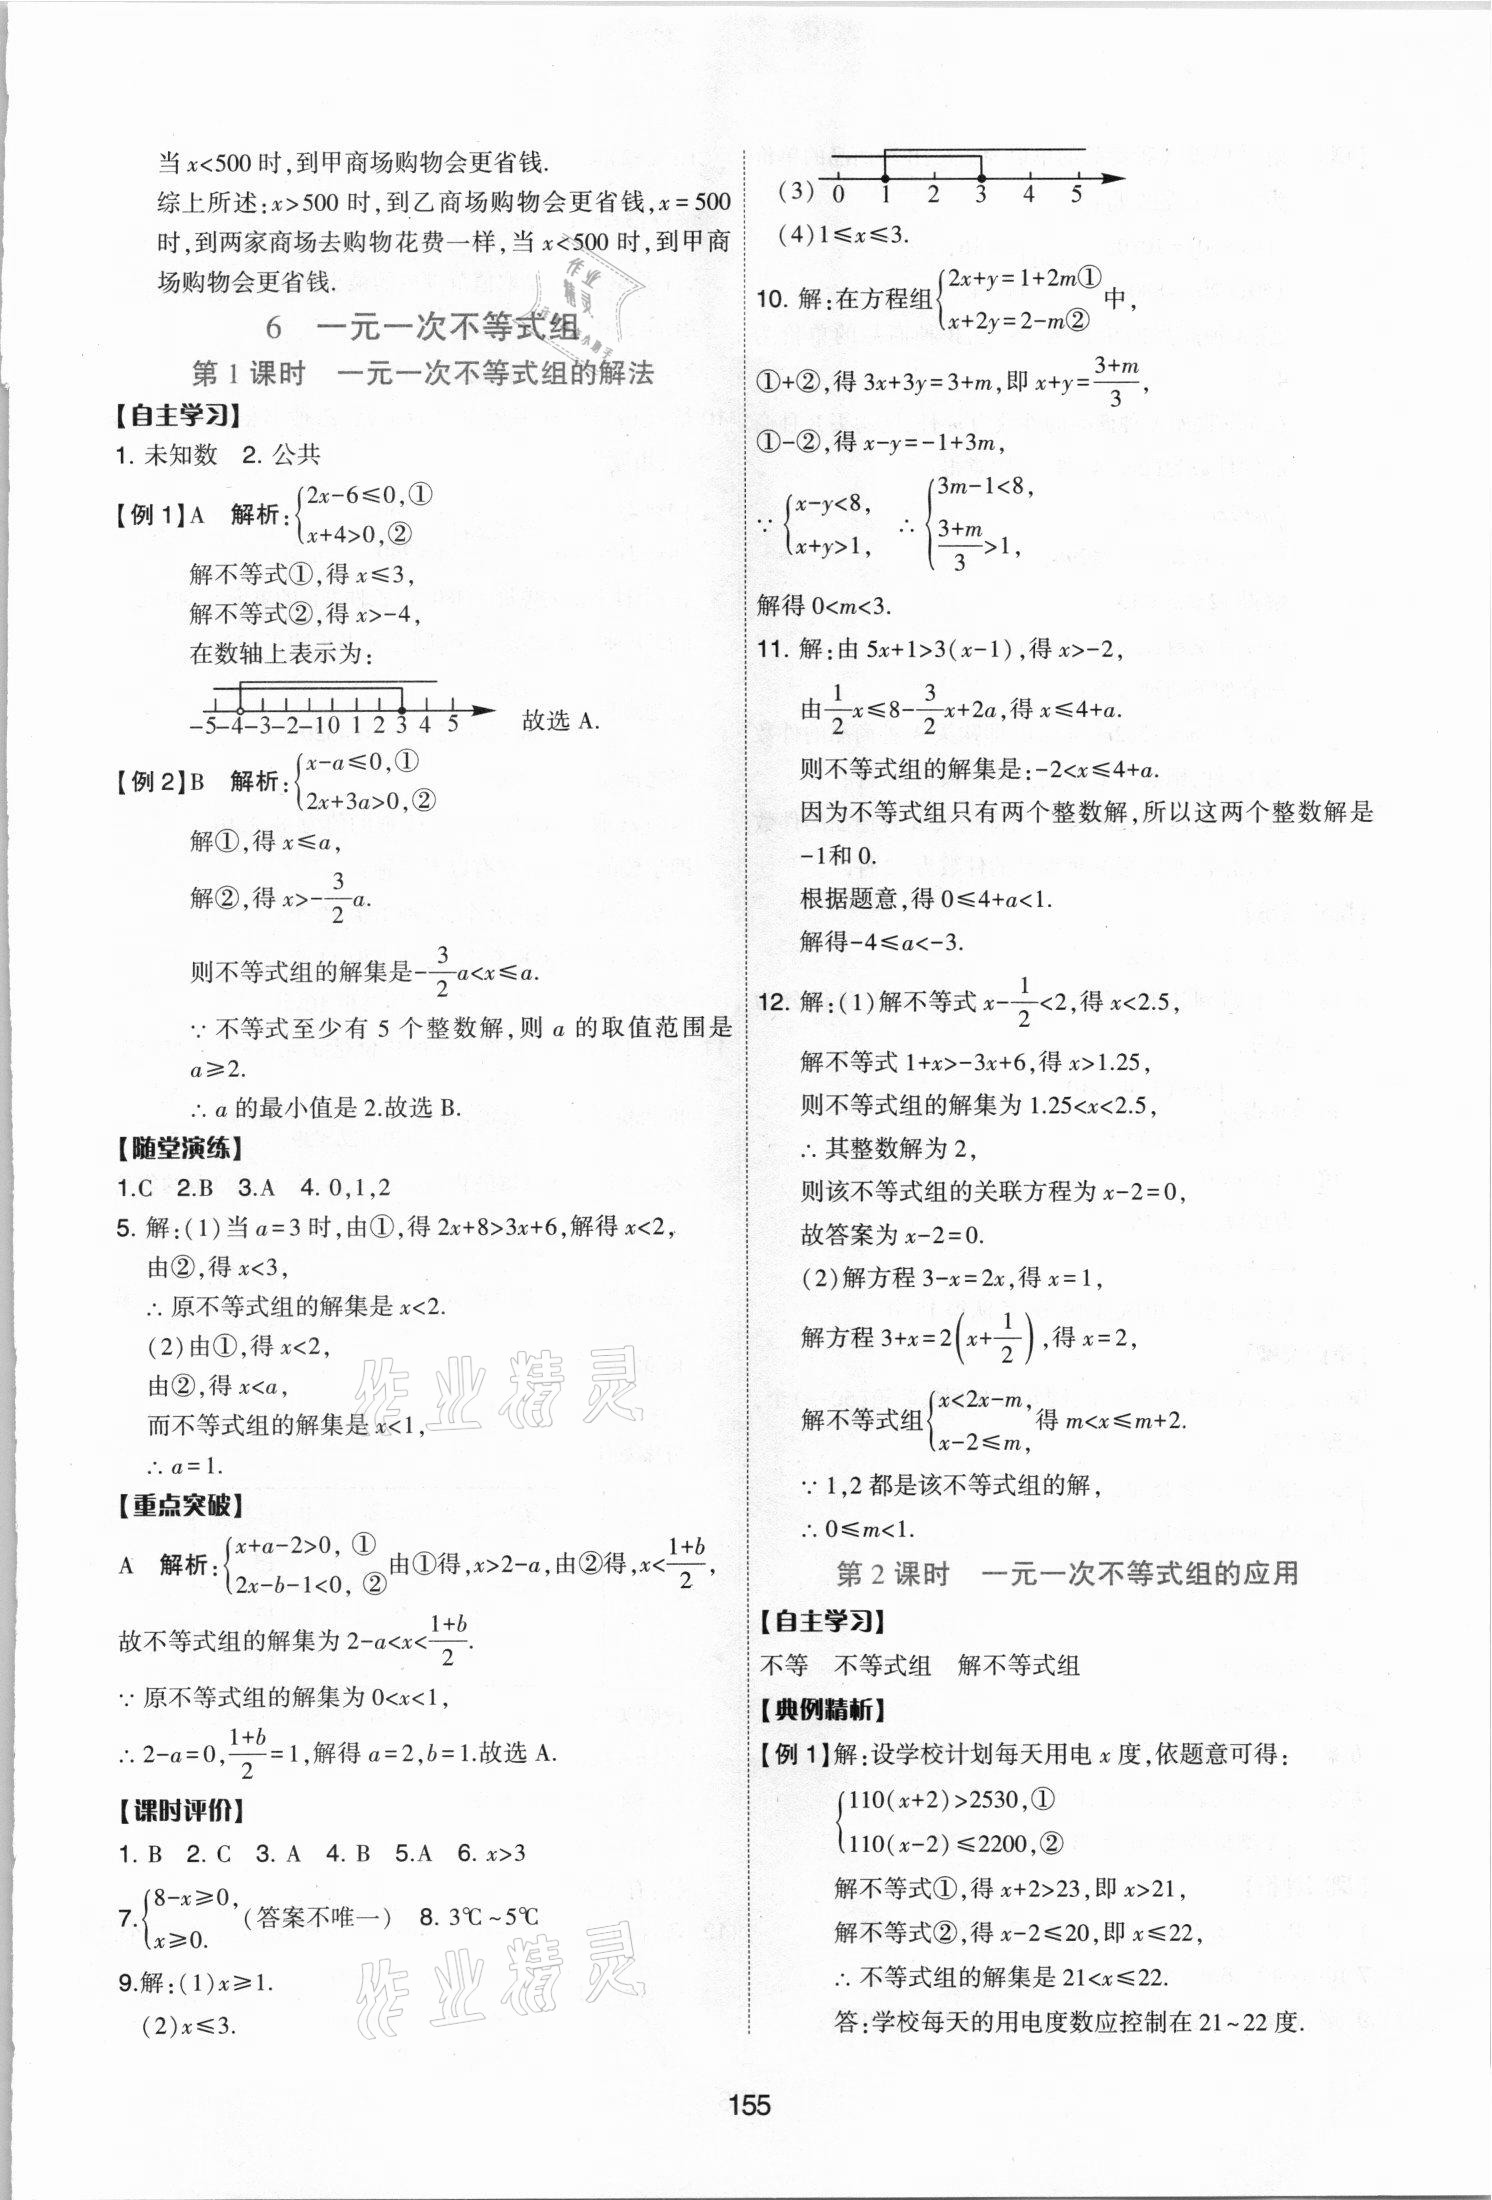 当 x<500 时,到甲商场购物会更省钱.
综上所述:x>500 时,到乙商场购物会更省钱,x=500
时,到两家商场去购物花费一样,当 x<500 时,到甲商
场购物会更省钱.
6 一元一次不等式组
第 1 课时 一元一次不等式组的解法
【自主学习】
1. 未知数 2. 公共
【例 1】A 解析:{2x-6≤0,①
x+4>0,②
解不等式①,得 x≤3,
解不等式②,得 x>-4,
在数轴上表示为:
-5-4-3-2-10 1 2 3 4 5 故选 A.
【例 2】B 解析:{x-a≤0,①
2x+3a>0,②
解①,得 x≤a,
解②,得 x>-3/2a.
则不等式组的解集是-3/2a<x≤a.
∵ 不等式至少有 5 个整数解,则 a 的取值范围是
a≥2.
∴ a 的最小值是 2.故选 B.
【随堂演练】
1.C 2.B 3.A 4. 0,1,2
5. 解:(1)当 a=3 时,由①,得 2x+8>3x+6,解得 x<2,
由②,得 x<3,
∴ 原不等式组的解集是 x<2.
(2)由①,得 x<2,
由②,得 x<a,
而不等式组的解集是 x<1,
∴ a=1.
【重点突破】
A 解析:{x+a-2>0, ①
2x-b-1<0, ② 由①得,x>2-a,由②得,x<(1+b)/2,
故不等式组的解集为 2-a<x<(1+b)/2.
∵ 原不等式组的解集为 0<x<1,
∴ 2-a=0,(1+b)/2=1,解得 a=2,b=1.故选 A.
【课时评价】
1. B 2. C 3. A 4. B 5.A 6. x>3
7.{8-x≥0,
x≥0. (答案不唯一) 8. 3℃~5℃
9.解:(1)x≥1.
(2)x≤3.
(3) 0 1 2 3 4 5
(4)1≤x≤3.
10. 解:在方程组{2x+y=1+2m①
x+2y=2-m② 中,
①+②,得 3x+3y=3+m,即 x+y=(3+m)/3,
①-②,得 x-y=-1+3m,
∵ {x-y<8,
x+y>1, ∴ {3m-1<8,
(3+m)/3>1,
解得 0<m<3.
11. 解:由 5x+1>3(x-1),得 x>-2,
由1/2x≤8-3/2x+2a,得 x≤4+a.
则不等式组的解集是:-2<x≤4+a.
因为不等式组只有两个整数解,所以这两个整数解是
-1和 0.
根据题意,得 0≤4+a<1.
解得-4≤a<-3.
12. 解:(1)解不等式 x-1/2<2,得 x<2.5,
解不等式 1+x>-3x+6,得 x>1.25,
则不等式组的解集为 1.25<x<2.5,
∴ 其整数解为 2,
则该不等式组的关联方程为 x-2=0,
故答案为 x-2=0.
(2)解方程 3-x=2x,得 x=1,
解方程 3+x=2(x+1/2),得 x=2,
解不等式组{x<2x-m,
x-2≤m, 得 m<x≤m+2.
∵ 1,2 都是该不等式组的解,
∴ 0≤m<1.
第 2 课时 一元一次不等式组的应用
【自主学习】
不等 不等式组 解不等式组
【典例精析】
【例 1】解:设学校计划每天用电 x 度,依题意可得:
{110(x+2)>2530,①
110(x-2)≤2200,②
解不等式①,得 x+2>23,即 x>21,
解不等式②,得 x-2≤20,即 x≤22,
∴ 不等式组的解集是 21<x≤22.
答:学校每天的用电度数应控制在 21~22 度.
155
作业精灵
作业精灵
作业
精灵